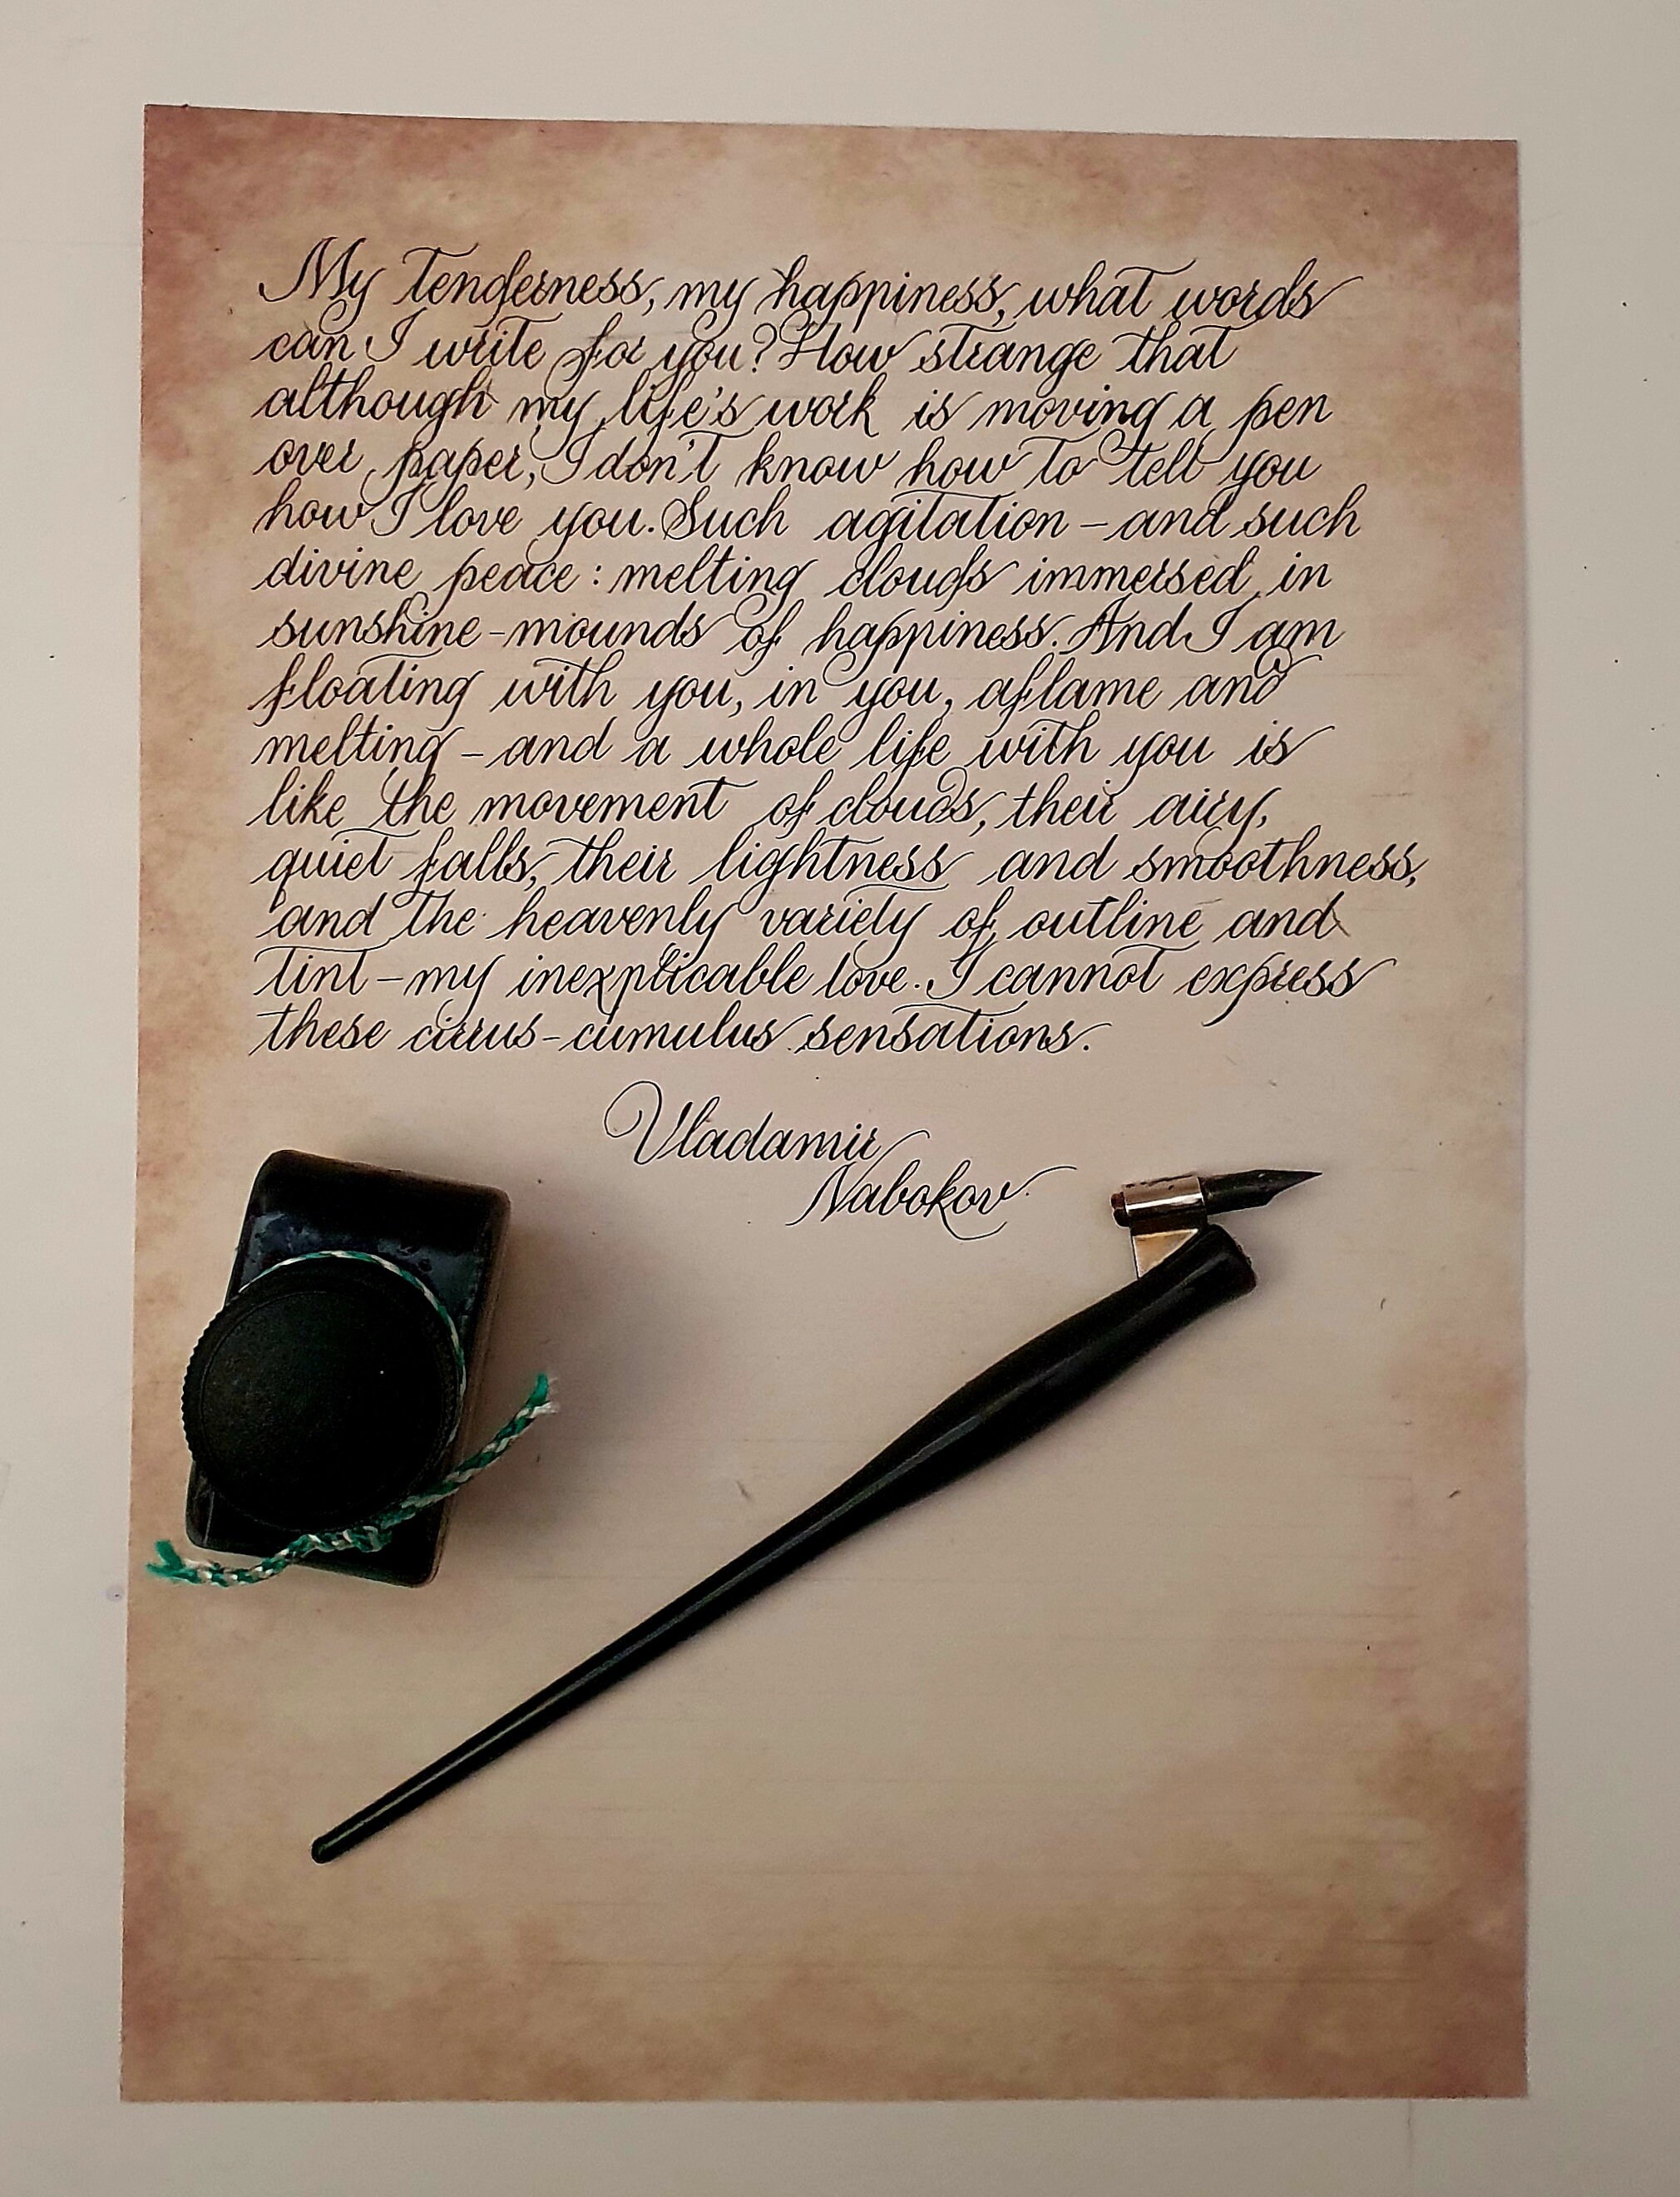 My tenderness, my happiness, what words
can I write for you? How strange that
although my life's work is moving a pen
over paper, I don't know how to tell you
how I love you. Such agitation – and such
divine peace : melting clouds immersed in
sunshine - mounds of happiness. And I am
floating with you, in you, aflame and
melting – and a whole life with you is
like the movement of clouds, their airy,
quiet falls, their lightness and smoothness,
and the heavenly variety of outline and
tint – my inexplicable love. I cannot express
these cirrus-cumulus sensations.
Vladamir
Nabokov